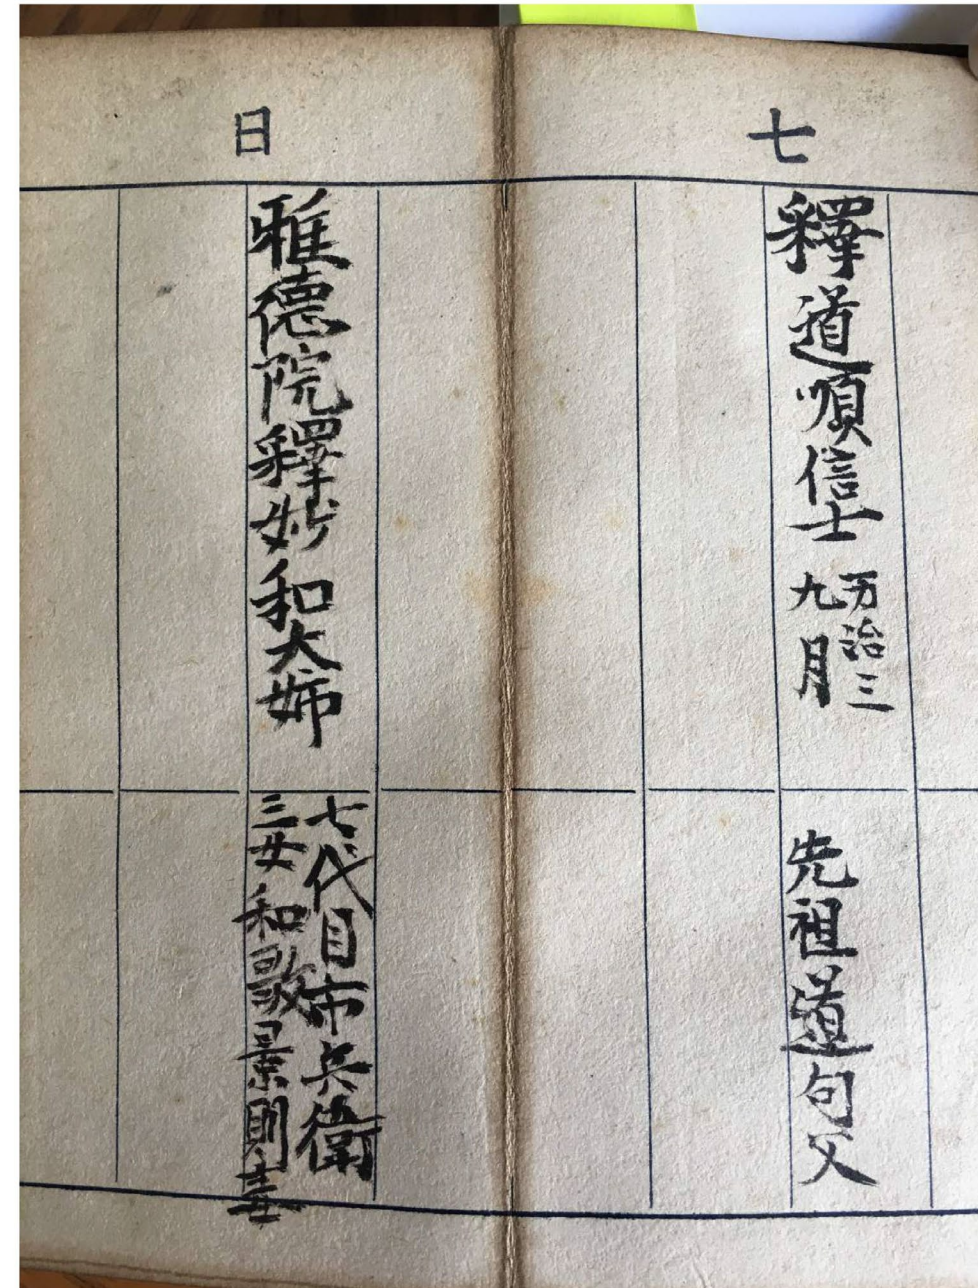 七
釋道順信士
万治三
九月
先祖道句父
日
雅徳院釋妙和大姉
七代目市兵衛
三女和歌景則妻